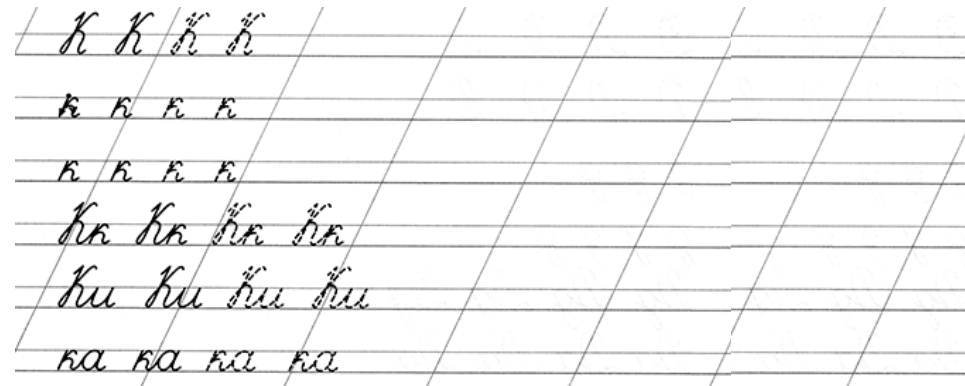 К К К К
к к к к
к к к к
Кк Кк Кк Кк
Ки Ки Ки Ки
ка ка ка ка